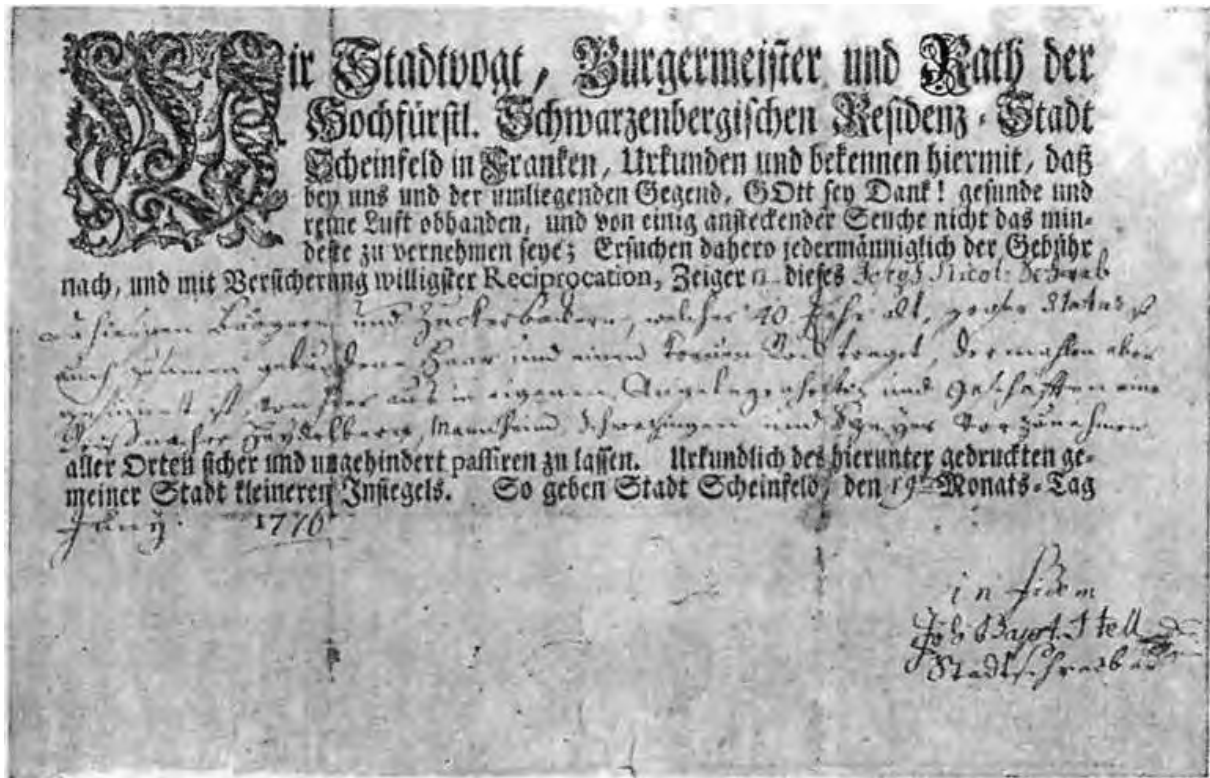 Wir Stadtvogt, Burgermeister und Rath der
Hochfürstl. Schwarzenbergischen Residenz-Stadt
Scheinfeld in Franken, Urkunden und bekennen hiermit, daß
bey uns und der umliegenden Gegend, GOtt sey Dank! gesunde und
reine Luft obhanden, und von einig ansteckender Seuche nicht das min-
deste zu vernehmen seye; Ersuchen dahero jedermänniglich der Gebühr
nach, und mit Versicherung willigster Reciprocation, Zeiger dieses Nicol
hiesigen Burgern und Zuckerbackern, welcher 40 Jahr alt, großer Statur
auch gebundene Haar und einen Rock traget, dermahlen aber
gesinnet ist, von hier aus in eigenen Angelegenheiten und Geschäfften eine
nacher Heydelberg, Mannheim, Schwezingen und Speyer vorzunehmen
aller Orten sicher und ungehindert passiren zu lassen. Urkundlich des hierunter gedruckten ge-
meiner Stadt kleineren Insiegels. So geben Stadt Scheinfeld, den 19ten Monats-Tag
Juny 1776
in fidem
Joh Bapt. Stell
Stadtschreiber